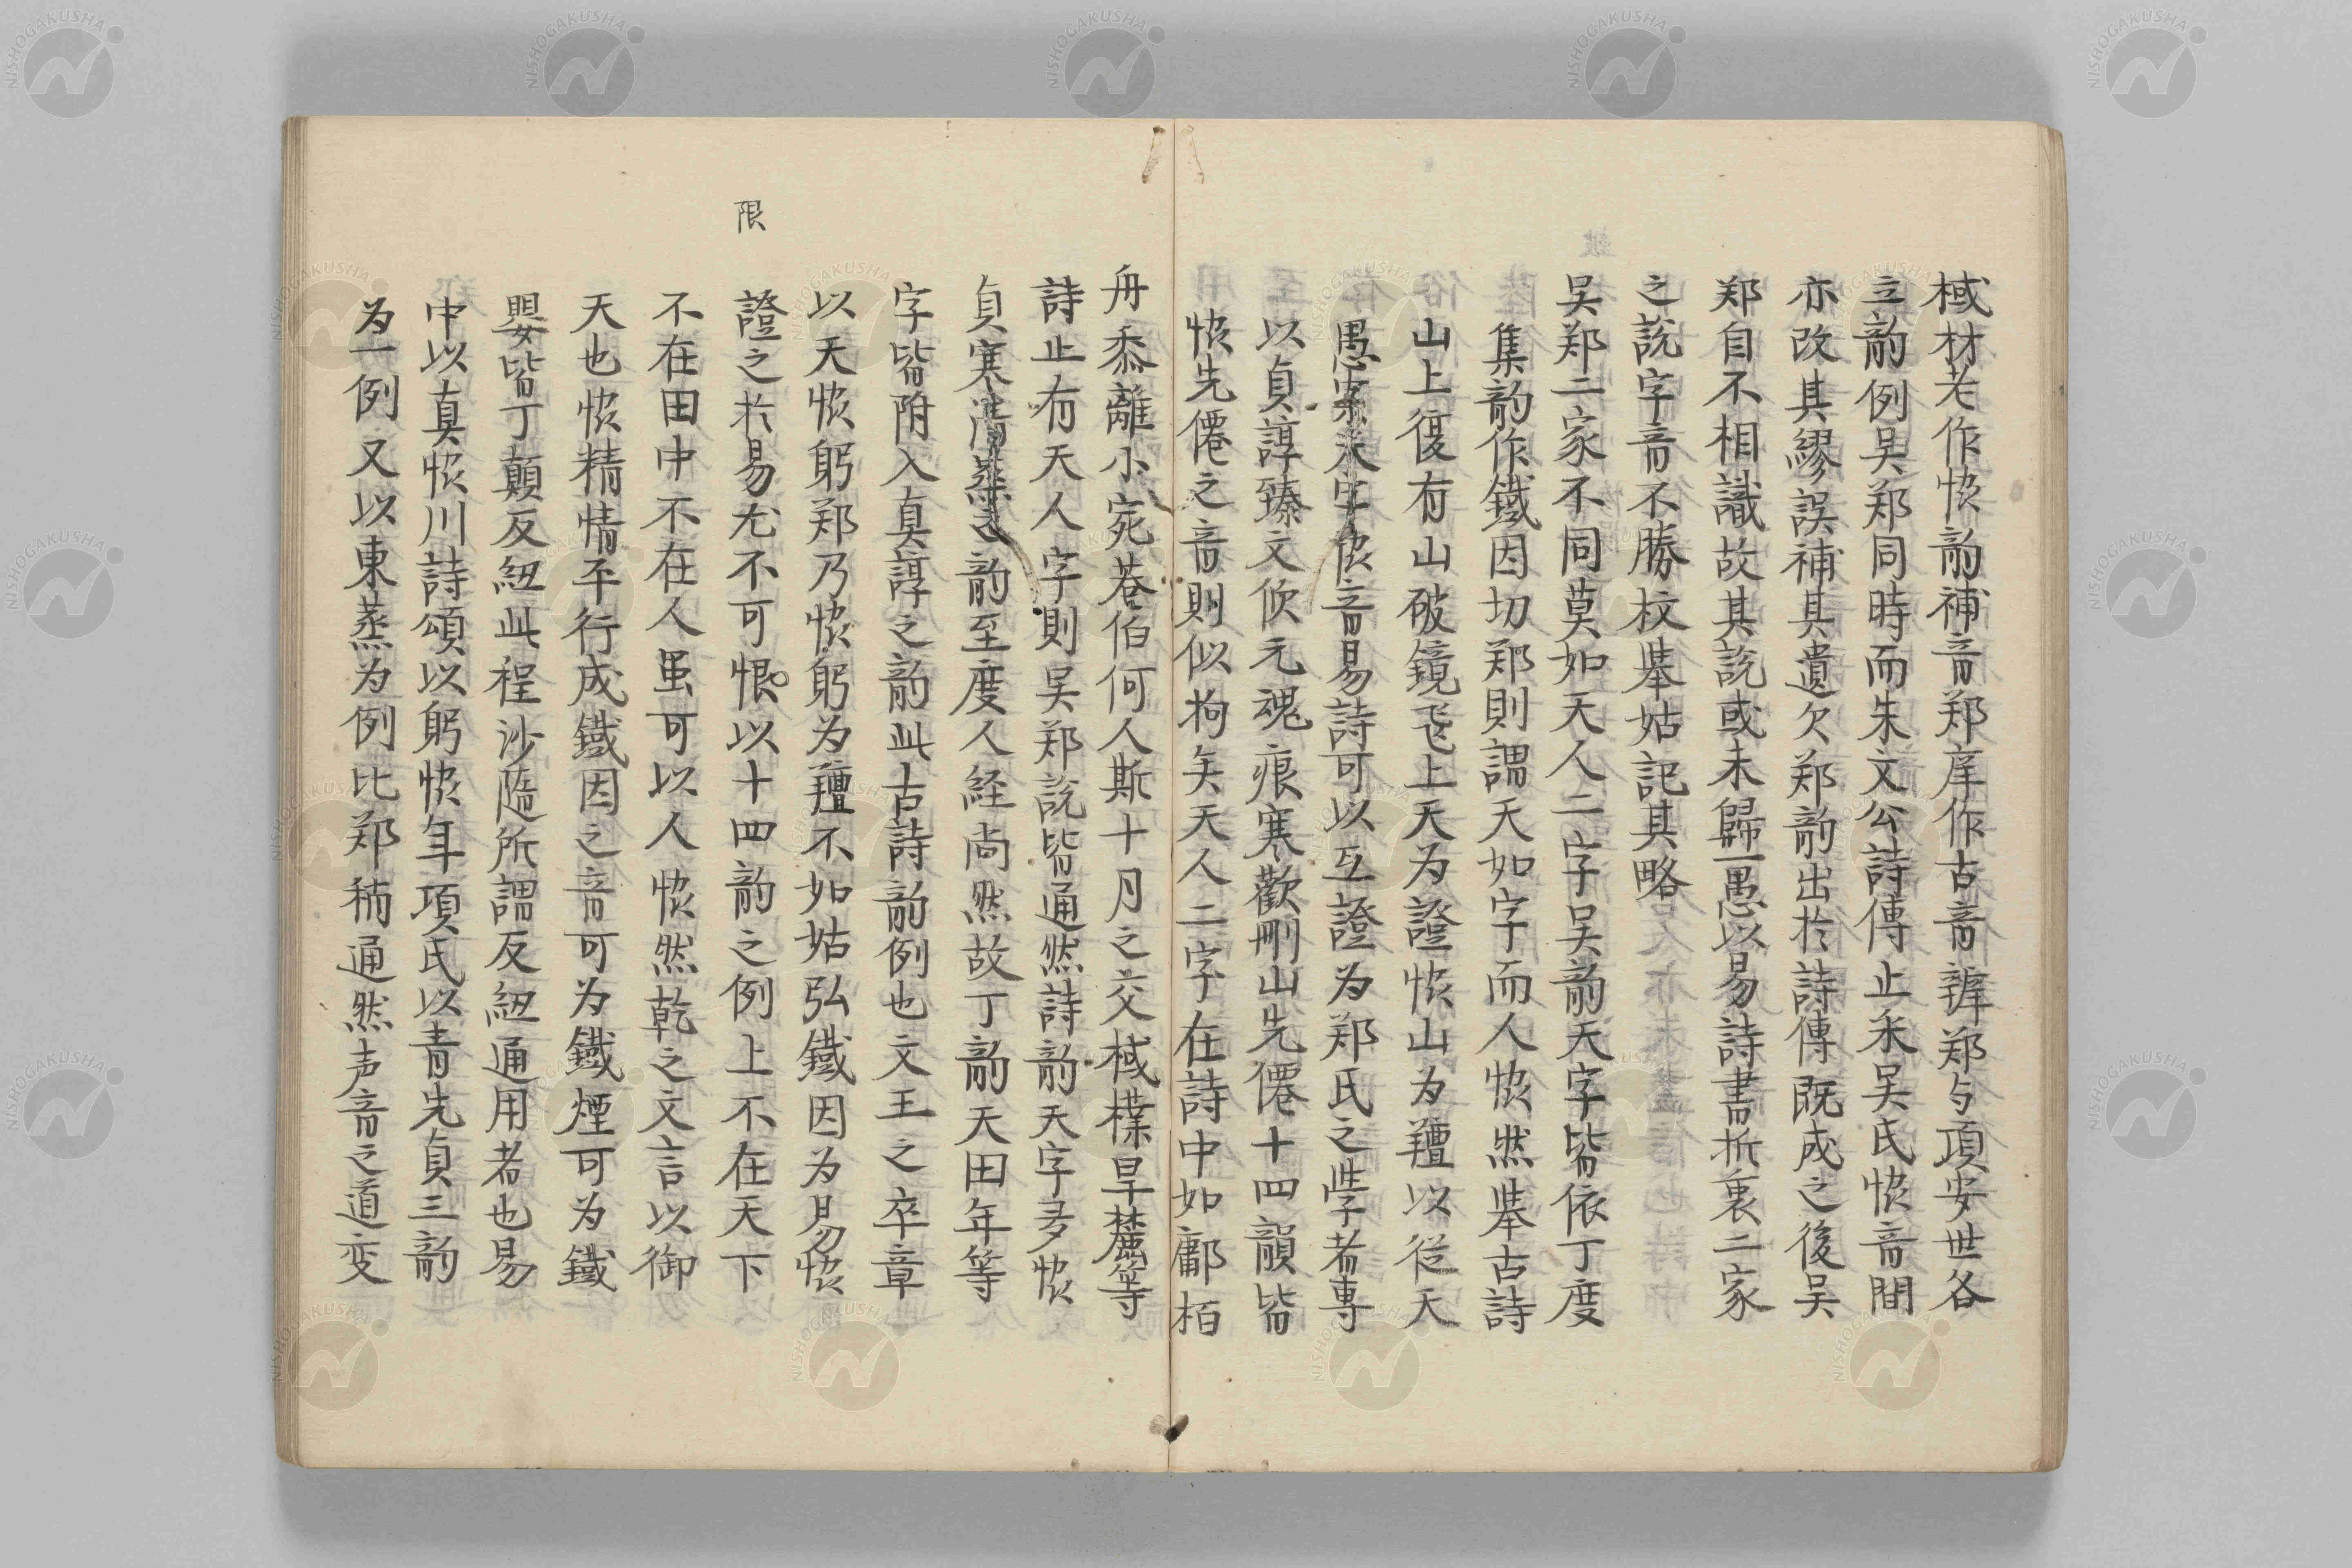 棫材老作恊韵補音郑庠作古音辨郑与項安世各
立韵例吴郑同時而朱文公詩傳止采吴氏恊音間
亦改其繆誤補其遺欠郑韵出於詩傳既成之後吴
郑自不相識故其說或未歸一愚以易詩書折衷二家
之說字音不勝枚举姑記其略
吴郑二家不同莫如天人二字吴韵天字皆依丁度
集韵作鐵因切郑則謂天如字而人恊然举古詩
山上復有山破鏡飞上天为證恊山为羶以從天
愚案天字恊音易詩可以互證为郑氏之斈者専
以貞諄臻文欣元魂痕寒歡刪山先僊十四韻皆
恊先僊之音則似拘矣天人二字在詩中如鄘栢
舟黍離小宛巷伯何人斯十月之交棫樸旱麓等
詩止有天人字則吴郑說皆通然詩韵天字多恊
貞寒清蒸之韵至度人経尚然故丁韵天田年等
字皆附入真諄之韵此古詩韵例也文王之卒章
以天恊躬郑乃恊躬为羶不如姑弘鐵因为易恊
證之於易尤不可恨以十四韵之例上不在天下
不在田中不在人虽可以人恊然乾之文言以御
天也恊精情平行成鐵因之音可为鐵煙可为鐵
嬰皆丁顛反紐此程沙隨所謂反紐通用者也易
中以真恊川詩頌以躬恊年項氏以青先貞三韵
为一例又以東蒸为例比郑稍通然声音之道变
限
NISHOGAKUSHA